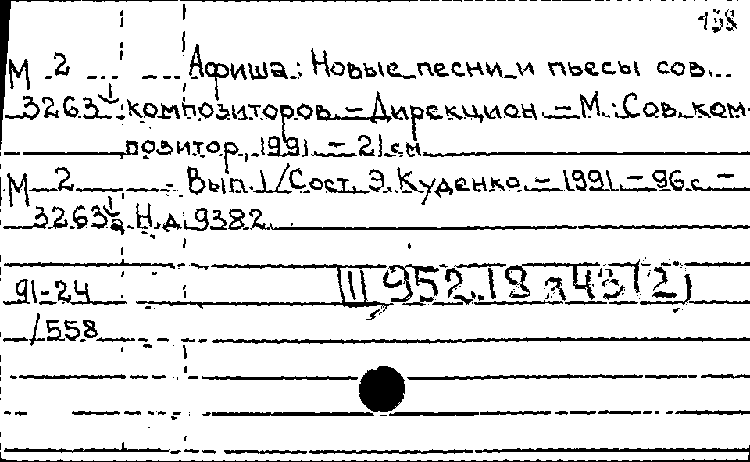 138
М 2 Афиша: Новые песни и пьесы сов.
3263 композиторов. – Дирекцион. – М.: Сов. ком-
позитор, 1991. – 21 см.
М 2 Вып. 1 / Сост. Э. Куденко. – 1991. – 96 с. –
3263 Н.д. 9382
91-24 III 952.18 а 43 (2)
/558